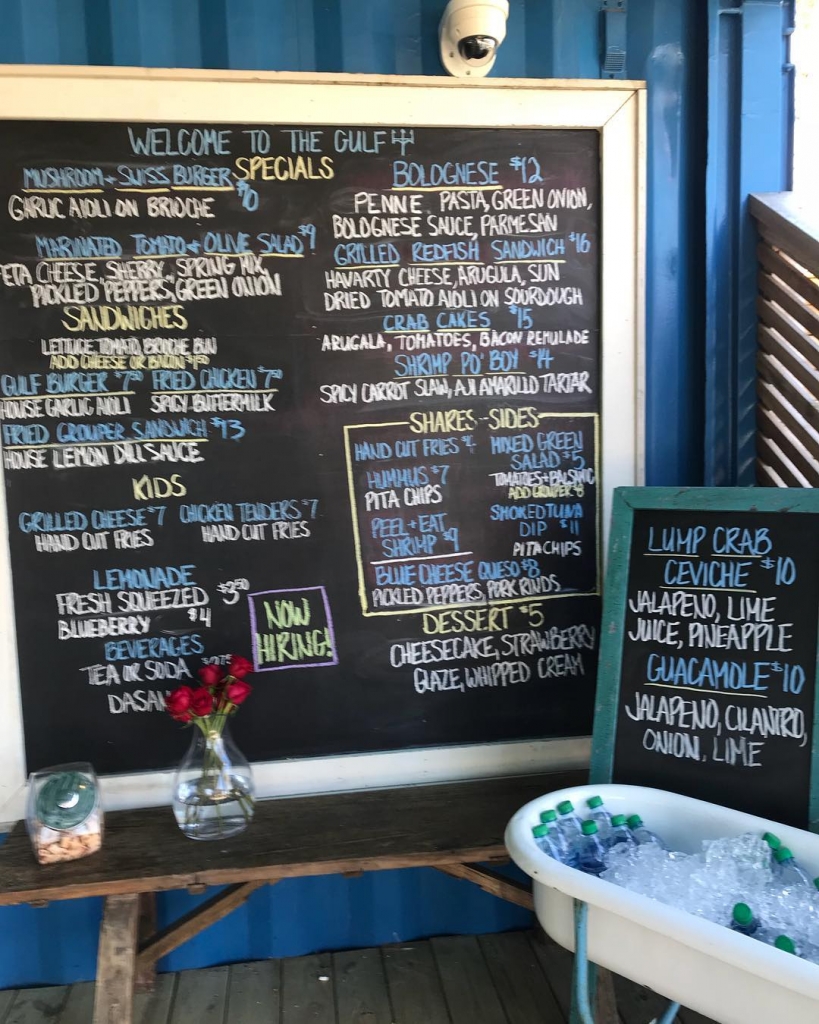 WELCOME TO THE GULF
SPECIALS
MUSHROOM + SWISS BURGER $10
GARLIC AIOLI ON BRIOCHE
MARINATED TOMATO + OLIVE SALAD $9
ETA CHEESE, SHERRY, SPRING MIX,
PICKLED PEPPERS, GREEN ONION
SANDWICHES
LETTUCE, TOMATO, BRIOCHE BUN
ADD CHEESE OR BACON $1.50
GULF BURGER $7.50 FRIED CHICKEN $7.50
HOUSE GARLIC AIOLI SPICY BUTTERMILK
FRIED GROUPER SANDWICH $13
HOUSE LEMON DILL SAUCE
KIDS
GRILLED CHEESE $7 CHICKEN TENDERS $7
HAND CUT FRIES HAND CUT FRIES
LEMONADE
FRESH SQUEEZED $3.50
BLUEBERRY $4
BEVERAGES
TEA OR SODA
DASAN
NOW
HIRING!
BOLOGNESE $12
PENNE PASTA, GREEN ONION,
BOLOGNESE SAUCE, PARMESAN
GRILLED REDFISH SANDWICH $16
HAVARTY CHEESE, ARUGULA, SUN
DRIED TOMATO AIOLI ON SOURDOUGH
CRAB CAKES $15
ARUGALA, TOMATOES, BACON REMULADE
SHRIMP PO' BOY $14
SPICY CARROT SLAW, AJI AMARILLO TARTAR
SHARES - SIDES
HAND CUT FRIES $4
HUMMUS $7
PITA CHIPS
PEEL + EAT
SHRIMP $9
MIXED GREEN
SALAD $5
TOMATOES + BALSAMIC
ADD GROUPER $8
SMOKED TUNA
DIP $11
PITA CHIPS
BLUE CHEESE QUESO $8
PICKLED PEPPERS, PORK RINDS
DESSERT $5
CHEESECAKE, STRAWBERRY
GLAZE, WHIPPED CREAM
LUMP CRAB
CEVICHE $10
JALAPENO, LIME
JUICE, PINEAPPLE
GUACAMOLE $10
JALAPENO, CILANTRO,
ONION, LIME